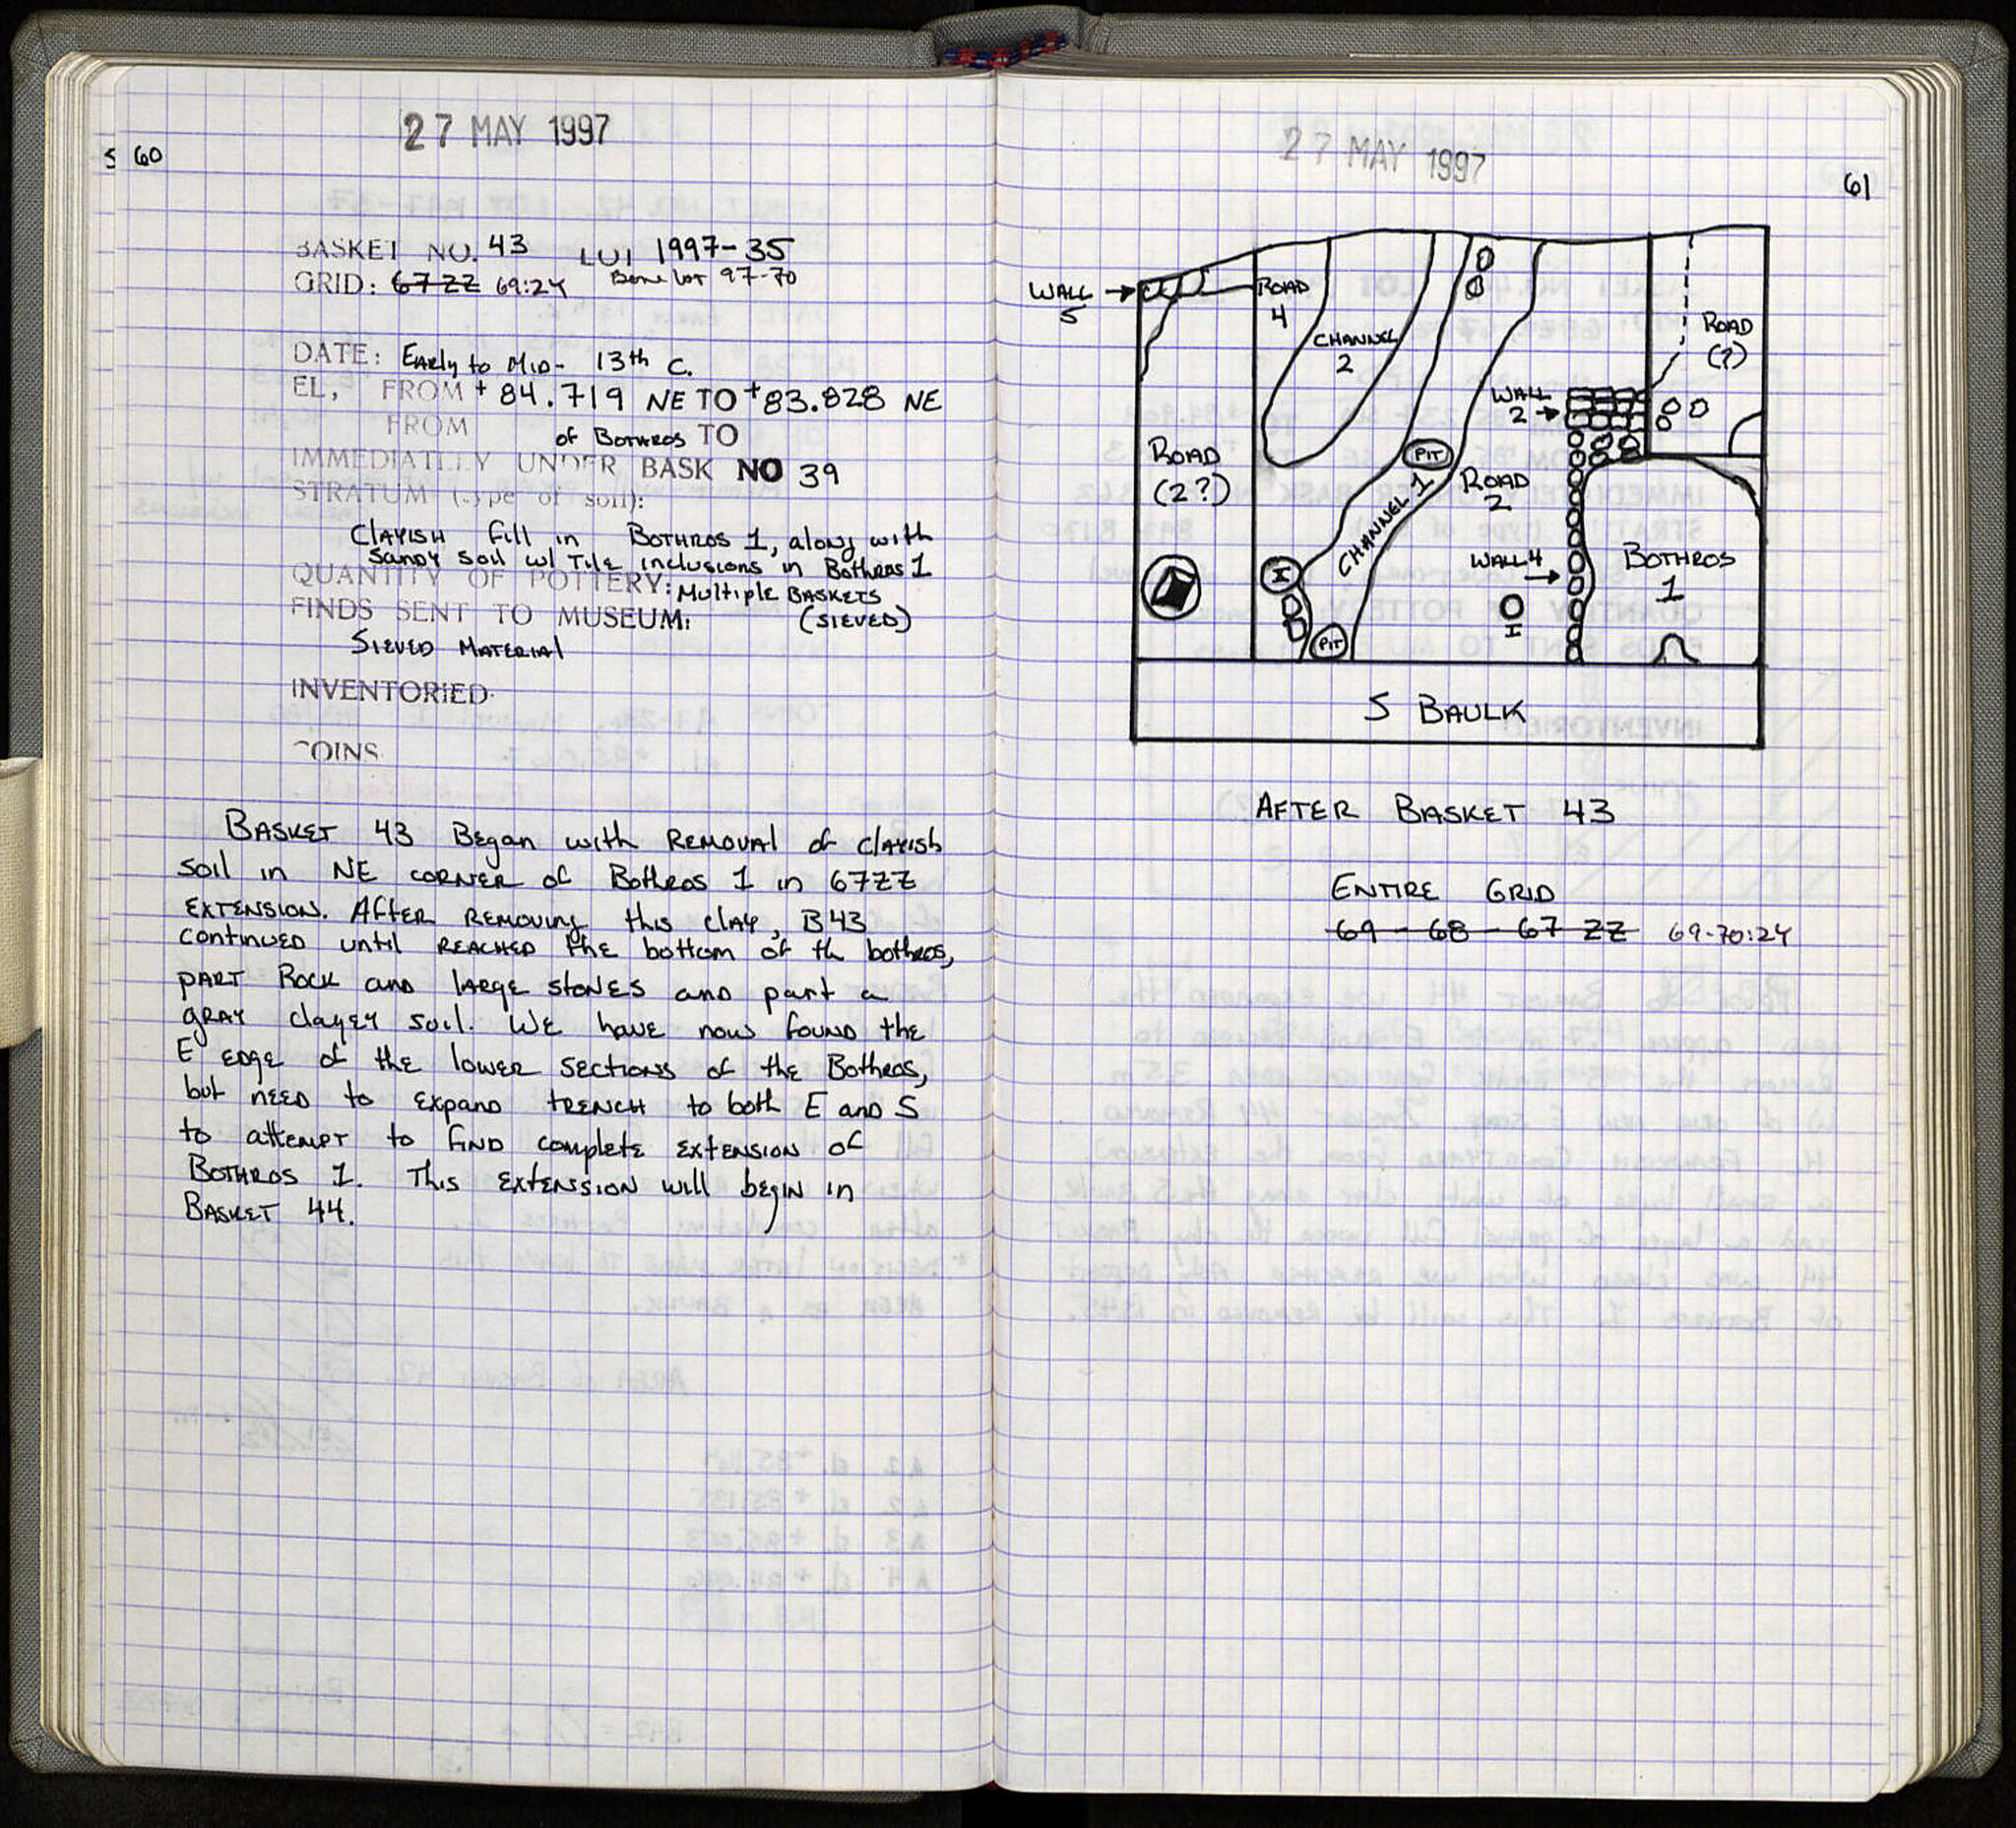 27 MAY 1997
60
BASKET NO. 43 LOT 1997-35
GRID: 67ZZ 69:24 Bone lot 97-70
DATE: Early to Mid- 13th C.
EL, FROM + 84.719 NE TO +83.828 NE
FROM of Bothros TO
IMMEDIATELY UNDER BASK NO 39
STRATUM (type of soil):
Clayish fill in Bothros 1, along with
sandy soil w/ Tile inclusions in Bothros 1
QUANTITY OF POTTERY: Multiple BASKETS
FINDS SENT TO MUSEUM: (SIEVED)
Sieved Material
INVENTORIED
COINS
BASKET 43 Began with Removal of clayish
soil in NE corner of Bothros 1 in 67ZZ
EXTENSION. After removing this clay, B43
continued until reached the bottom of th bothros,
part Rock and large stones and part a
gray clayey soil. We have now found the
E edge of the lower sections of the Bothros,
but need to expand trench to both E and S
to attempt to find complete extension of
Bothros 1. This extension will begin in
Basket 44.
27 MAY 1997
61
WALL 5
ROAD 4
CHANNEL 2
ROAD (?)
WALL 2
ROAD (2?)
PIT
CHANNEL 1
ROAD 2
WALL 4
BOTHROS 1
I
I
PIT
S BAULK
AFTER BASKET 43
ENTIRE GRID
69 - 68 - 67 ZZ 69-70:24